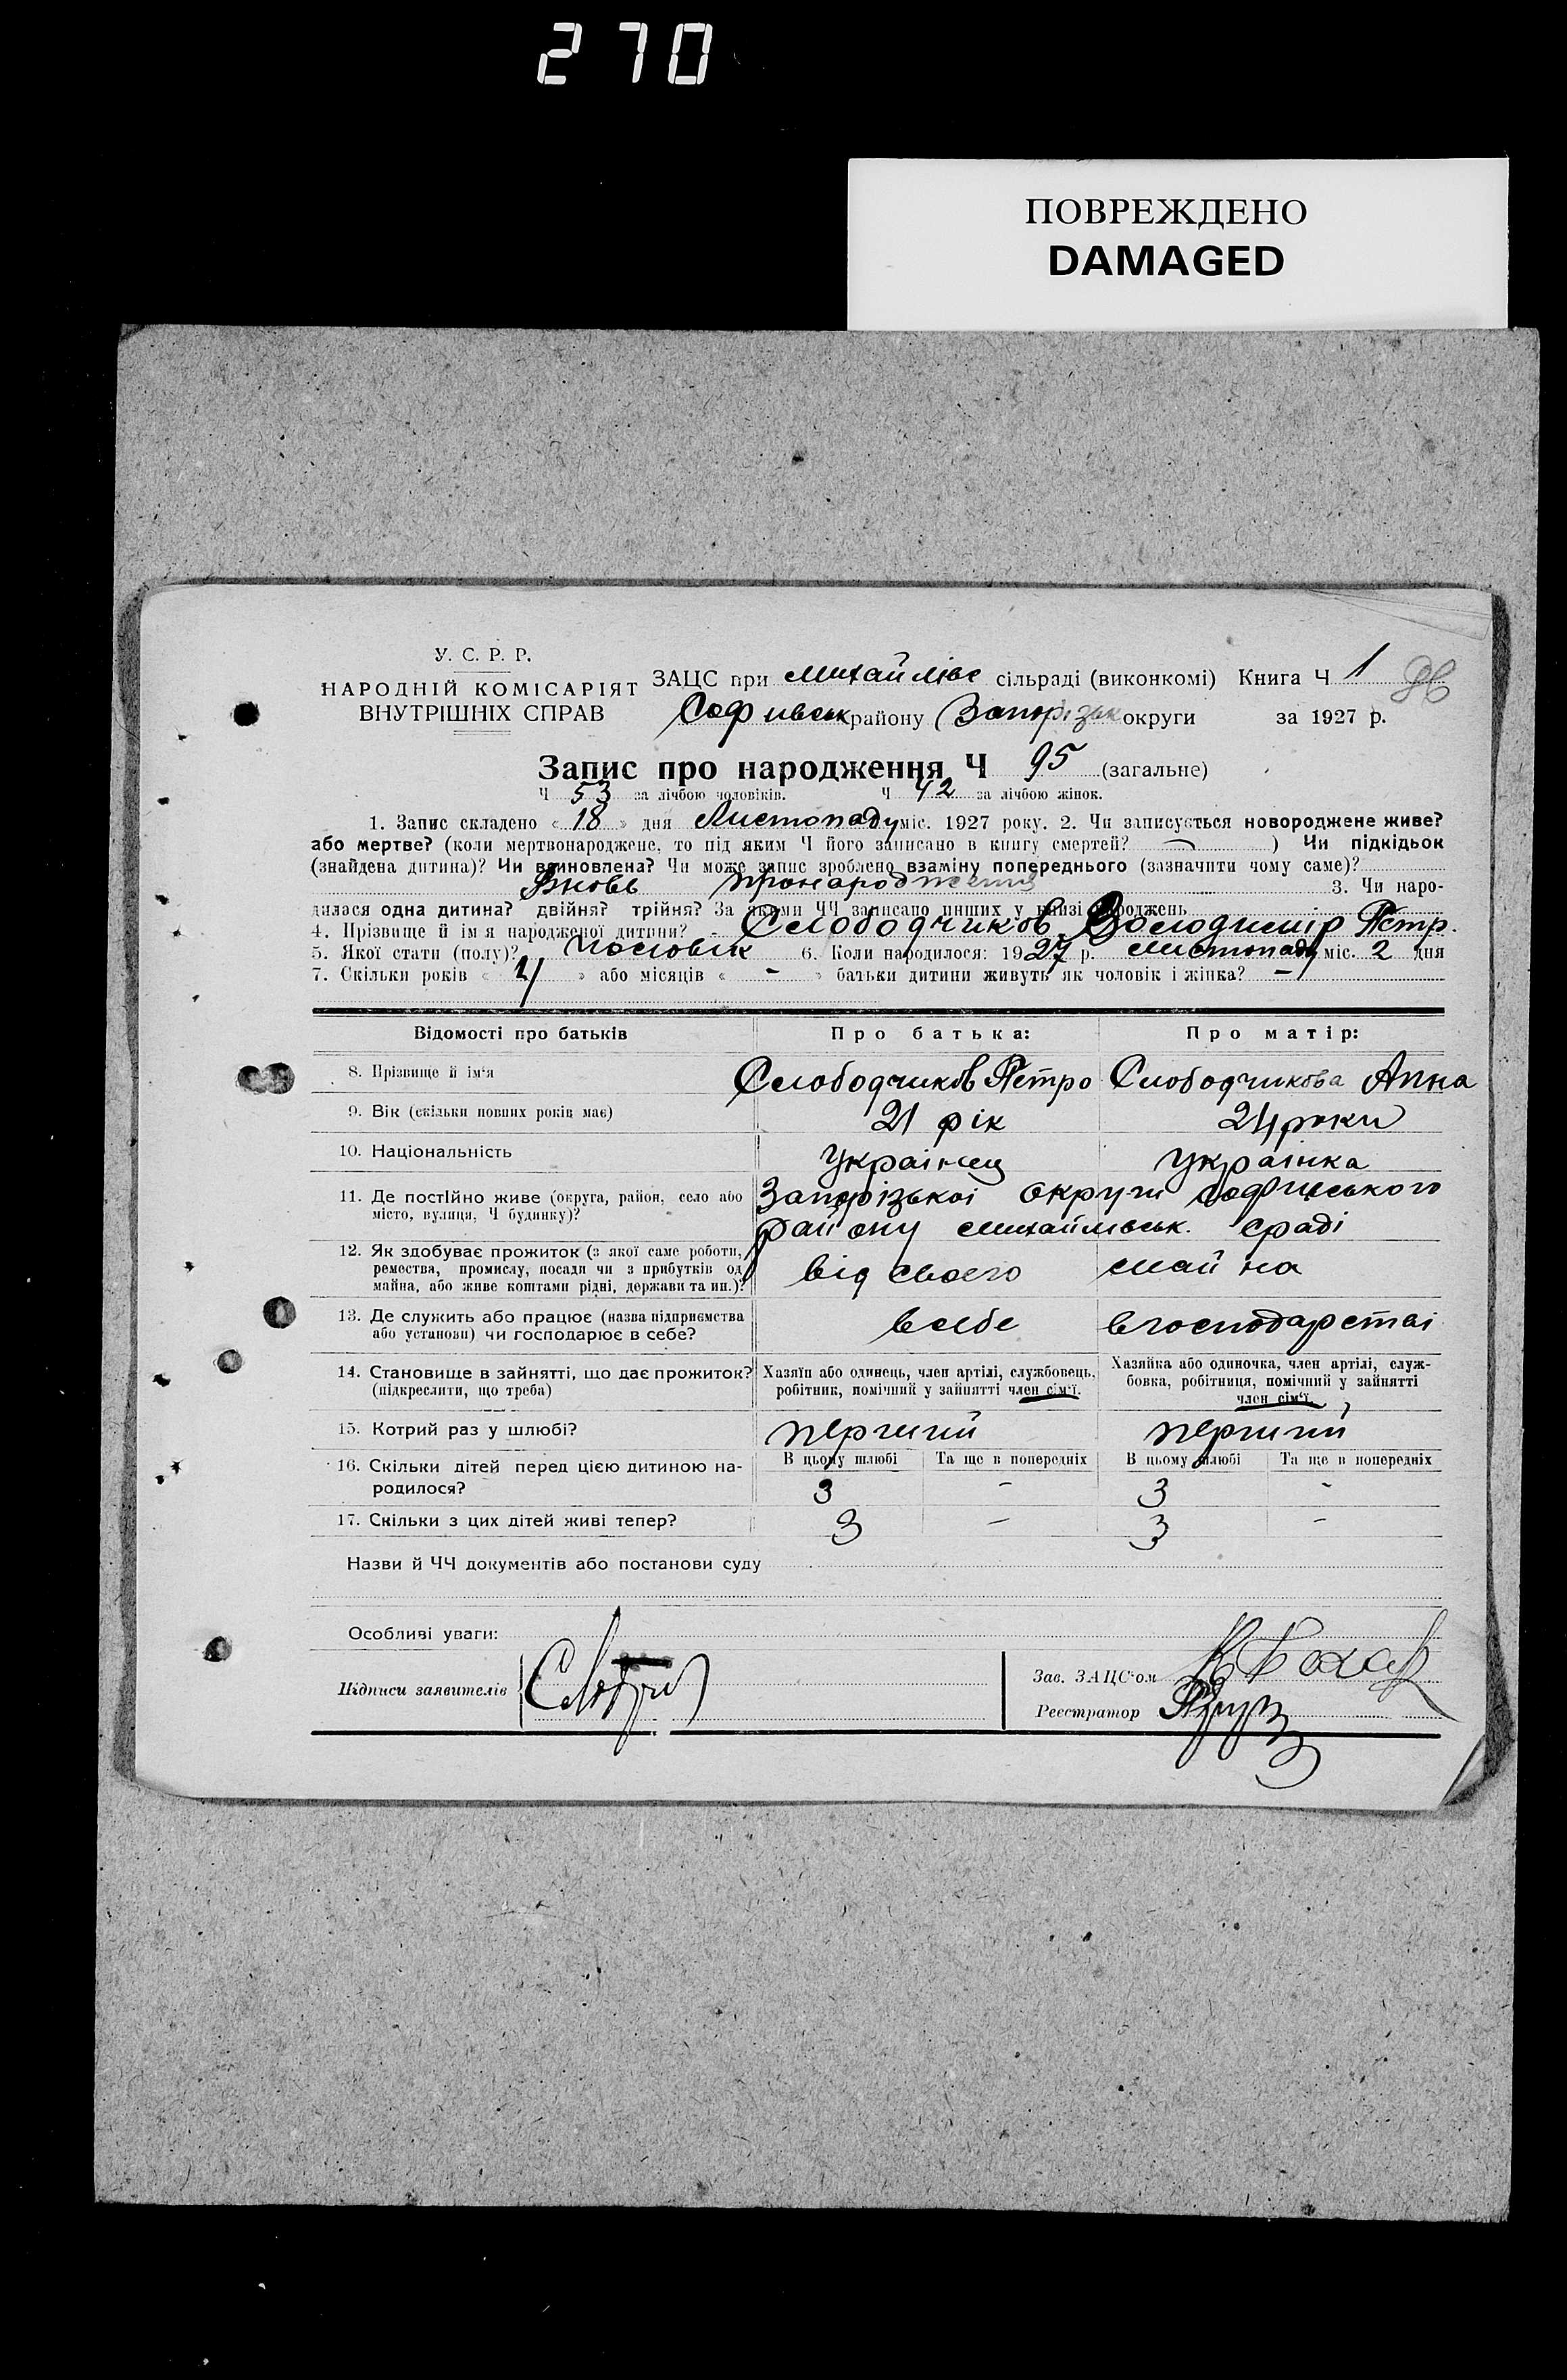 270
ПОВРЕЖДЕНО
DAMAGED
У. С. Р. Р.
НАРОДНІЙ КОМІСАРІЯТ
ВНУТРІШНІХ СПРАВ
ЗАЦС при Михайлівс сільраді (виконкомі) Книга Ч 1
Софиївськ району Запорізьк округи за 1927 р.
Запис про народження Ч 95 (загальне)
Ч 53 за лічбою чоловіків. Ч 42 за лічбою жінок.
1. Запис складено « 18 » дня Листопаду міс. 1927 року. 2. Чи записується новороджене живе?
або мертве? (коли мертвонароджене, то під яким Ч його записано в книгу смертей? — ) Чи підкідьок
(знайдена дитина)? Чи вчиновлена? Чи може запис зроблено взаміну попереднього (зазначити чому саме)?
Вновь 3. Чи наро-
дилася одна дитина? двійня? трійня? За якими ЧЧ записано инших у книзі народжень -
4. Прізвище й ім я народженої дитини? - Слободчиков Володимир Петр.
5. Якої стати (полу)? чоловік 6. Коли народилося: 1927 р. листопаду міс. 2 дня
7. Скільки років « 4 » або місяців « - » батьки дитини живуть як чоловік і жінка? -
Відомості про батьків Про батька: Про матір:
8. Прізвище й ім‘я Слободчиков Петро Слободчикова Анна
9. Вік (скільки повних років має) 21 рік 24 роки
10. Національність Українец Українка
11. Де постійно живе (округа, район, село або Запорізької округи Софиївського
місто, вулиця, Ч будинку)? району михайлівськ. сраді
12. Як здобуває прожиток (з якої саме роботи,
ремества, промислу, посади чи з прибутків од від своего майна
майна, або живе коштами рідні, держави та ин.)?
13. Де служить або працює (назва підприємства в себе в господарстві
або установи) чи господарює в себе?
14. Становище в зайнятті, що дає прожиток? Хазяїн або одинець, член артілі, службовець, Хазяйка або одиночка, член артілі, служ-
(підкреслити, що треба) робітник, помічний у зайнятті член сім‘ї. бовка, робітниця, помічний у зайнятті
член сім‘ї.
15. Котрий раз у шлюбі? перший перший
16. Скільки дітей перед цією дитиною на- В цьому шлюбі Та ще в попередніх В цьому шлюбі Та ще в попередніх
родилося? 3 - 3 -
17. Скільки з цих дітей живі тепер? 3 - 3 -
Назви й ЧЧ документів або постанови суду
Особливі уваги:
Підписи заявителів
Зав. ЗАЦС‘ом
Реєстратор